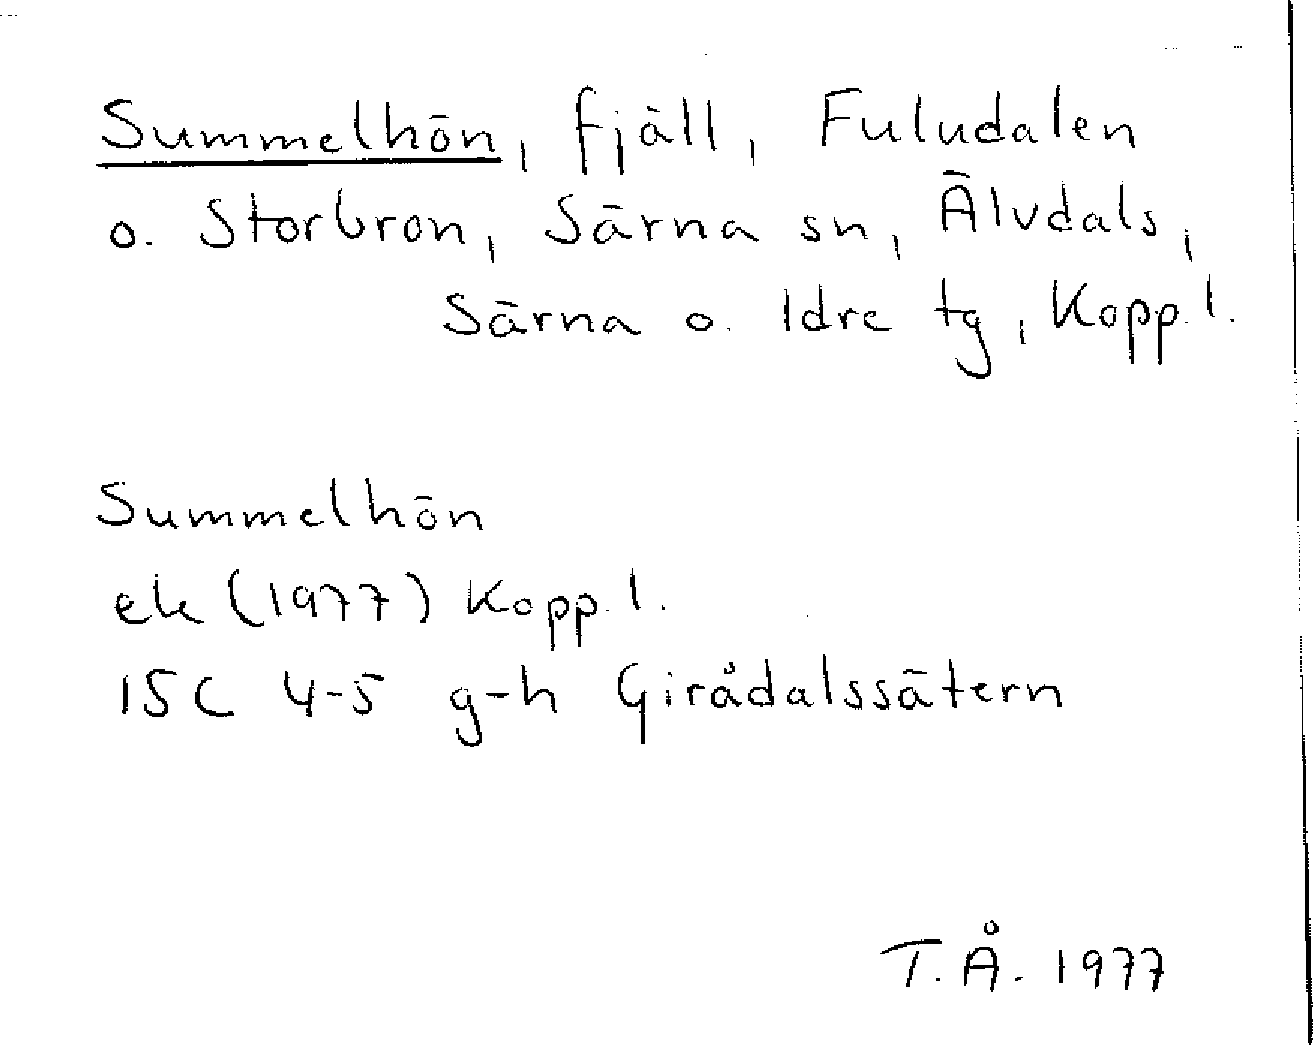 Summelhön, fjäll, Fuludalen
o. Storbron, Särna sn, Älvdals,
Särna o. Idre tg, Kopp. l.
Summelhön
ek (1977) Kopp. l.
15C 4-5 g-h Girådalssätern
T.Å. 1977